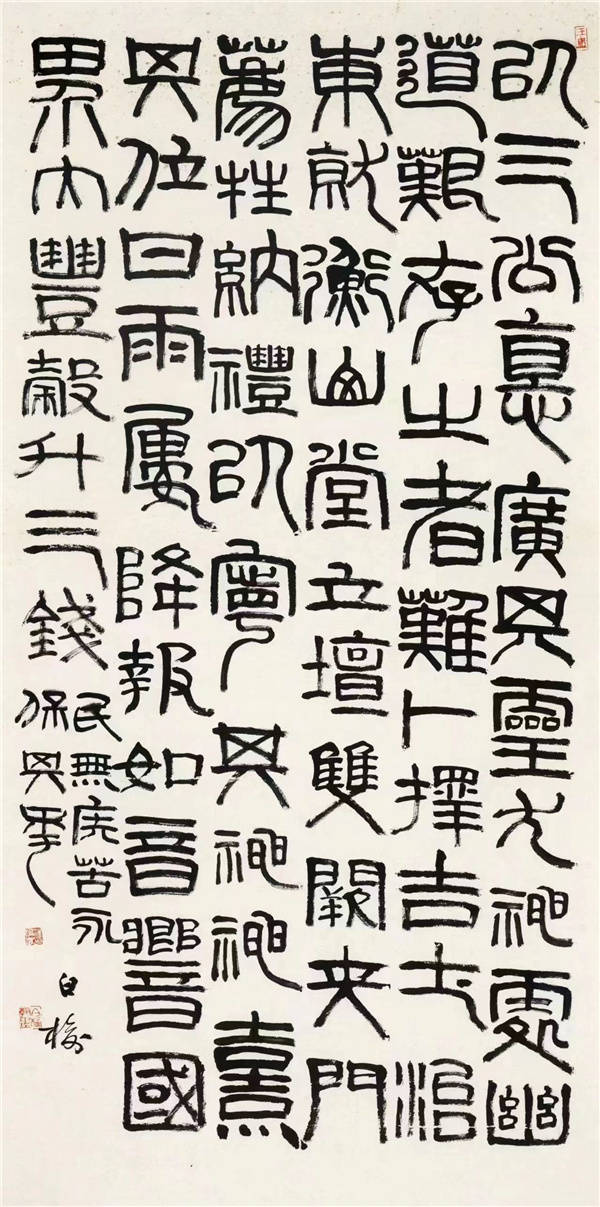 以三公惪廣其靈尤神處幽
道艱存之者難卜擇吉土治
東就衡山堂立壇雙闕夾門
薦牲納禮以寧其神神熹
其位甘雨屢降報如音響國
界大豐穀斗三錢
民無疾苦永
保其年
白